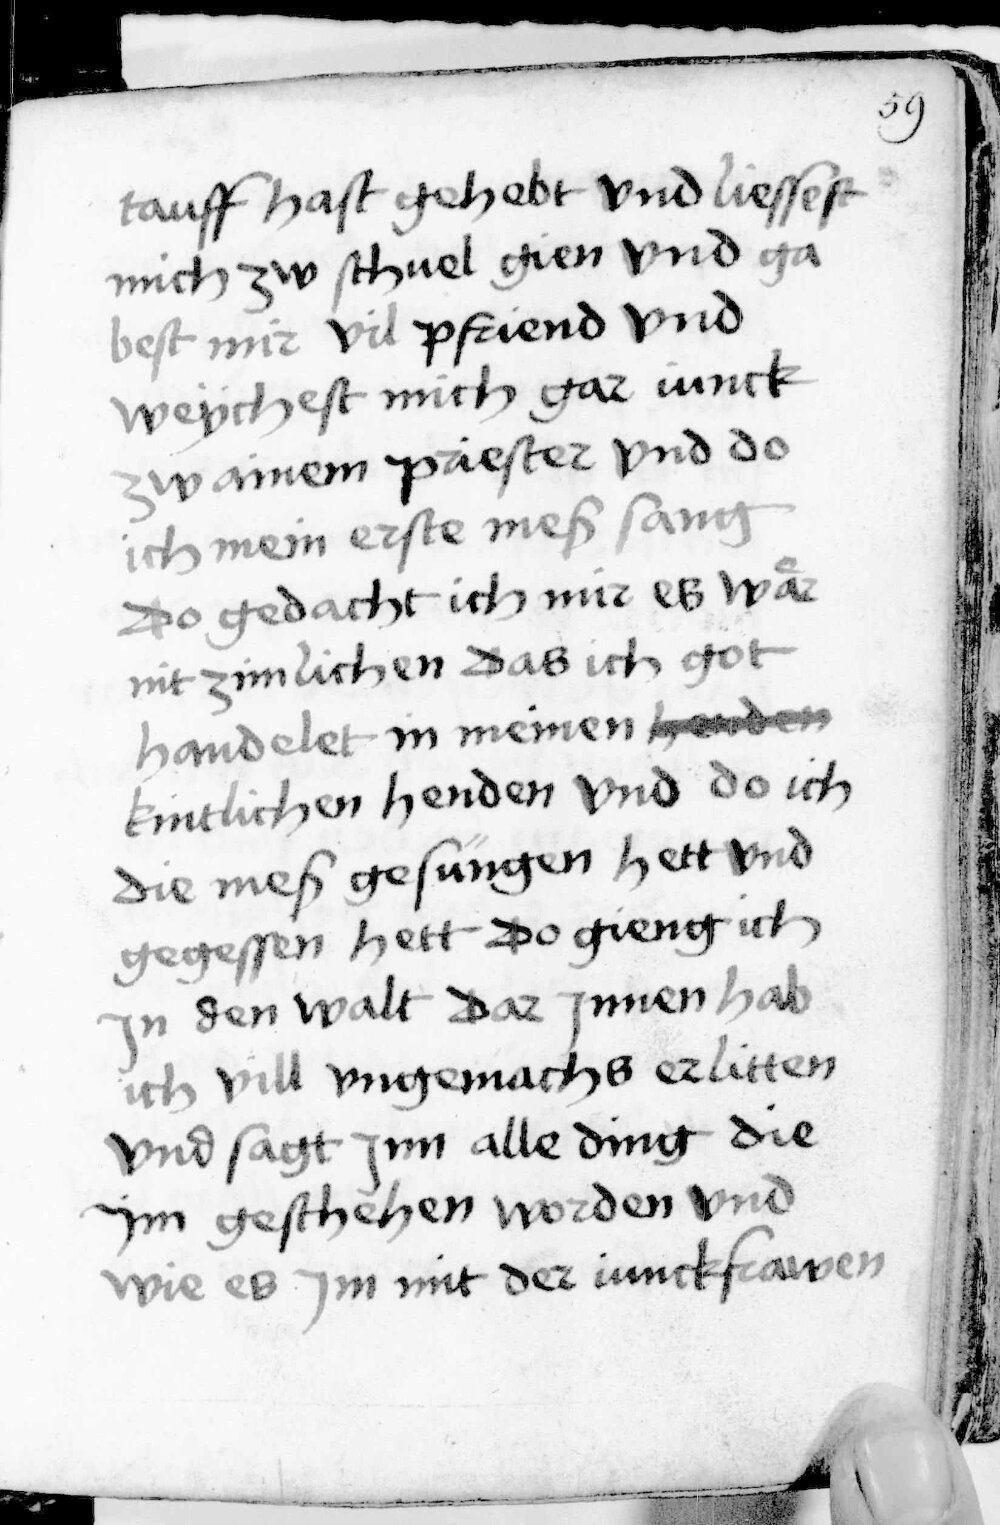 59
tauff hast gehebt vnd liessest
mich zw schuel gien vnd ga
best mir vil pfriend vnd
weychest mich gar iunck
zw ainem priester vnd do
ich mein erste meß sang
Do gedacht ich mir es waͤr
nit zimlichen Das ich got
handelet in meinen henden
kintlichen henden vnd do ich
die meß gesüngen hett vnd
gegessen hett Do gieng ich
Jn den walt Dar Jnnen hab
ich vill vngemachs erlitten
vnd sagt Jnn alle ding die
ym geschehen worden vnd
wie es Jm mit der iunckfrawen